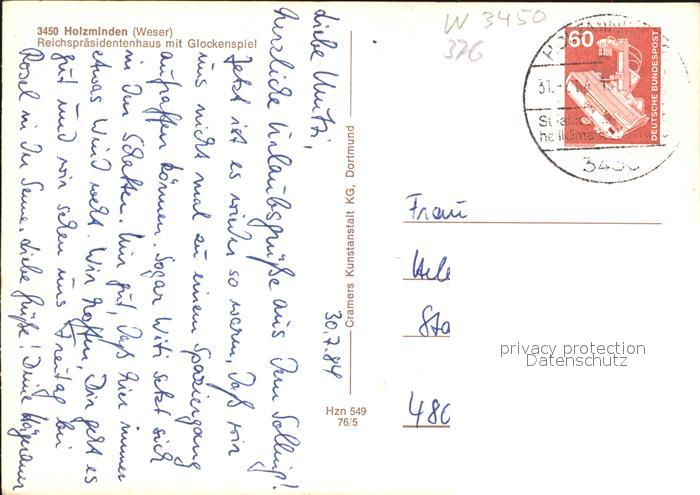 3450 Holzminden (Weser)
Reichspräsidentenhaus mit Glockenspiel
W 3450
376
60
DEUTSCHE BUNDESPOST
31.
3450
30.7.84
Liebe Mutti,
herzliche Urlaubsgrüße aus dem Solling!
Jetzt ist es wieder so warm, daß wir
uns nicht mal zu einem Spaziergang
aufraffen können. Sogar Witi setzt sich
in den Schatten. Nur gut, daß hier immer
etwas Wind weht. Wir hoffen, Dir geht es
gut und wir sehen uns Freitag bei
Rosel in der Senne. Liebe Grüße! Deine
Cramers Kunstanstalt KG, Dortmund
Hzn 549
76/5
Frau
Hele
Sta
480
privacy protection
Datenschutz